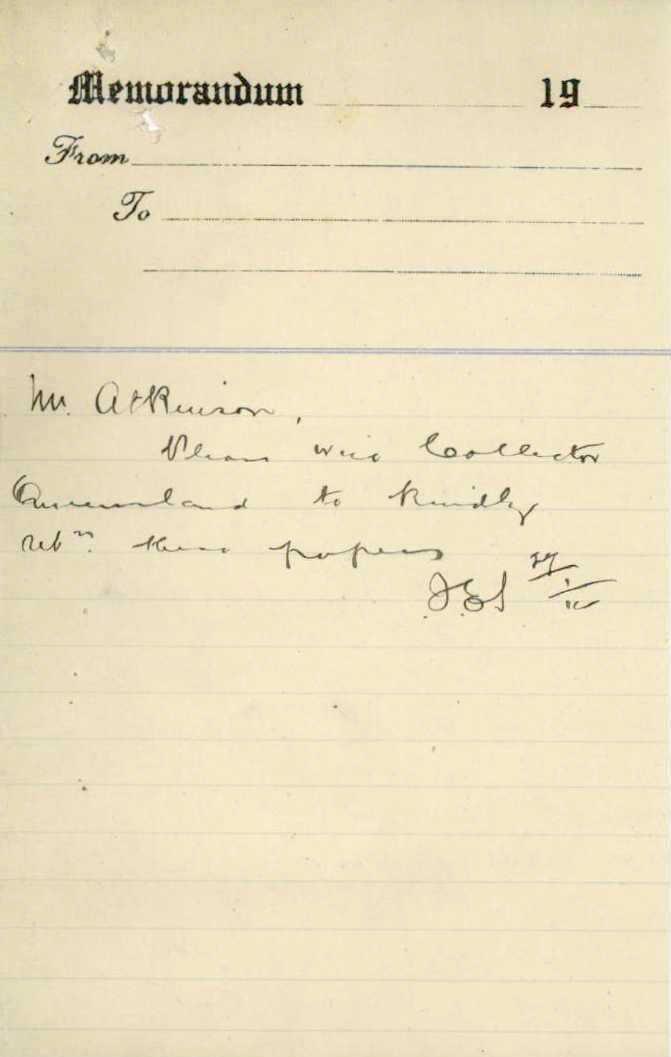 Memorandum 19
From
To
Mr. Atkinson,
Please wire Collector
Queensland to kindly
retn. these papers
J.E.S 29/1/